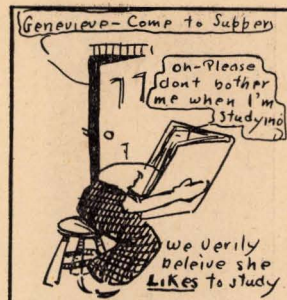 Genevieve - Come to Supper
oh-Please
dont bother
me when I'm
studying
we verily
beleive she
LIKES to study